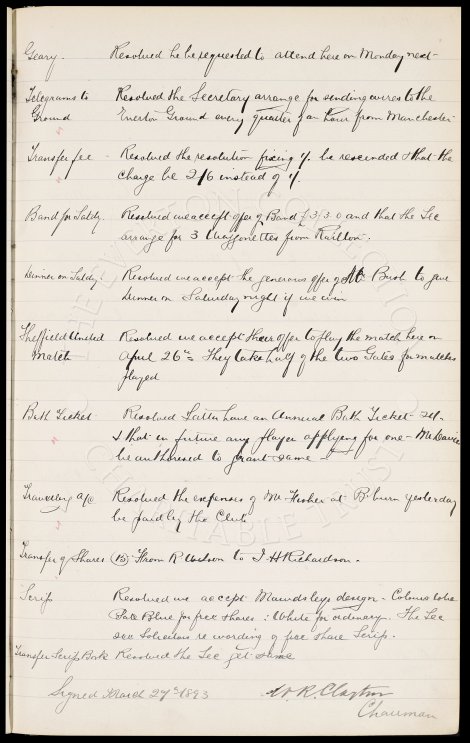 Geary. Resolved he be requested to attend here on Monday next
Telegrams to Resolved the Secretary arrange for sending wires to the
Ground Everton Ground every quarter of an hour from Manchester
Transfer fee Resolved the resolution fixing 1/- be rescinded & that the
charge be 2/6 instead of 1/-
Band for Satdy. Resolved we accept offer of Band £3.3.0 and that the Sec
arrange for 3 Waggonettes from Railton.
Dinner on Satdy! Resolved we accept the generous offer of Mr Bush to give
dinner on Saturday night if we win
Sheffield United Resolved we accept their offer to play the match here on
Match April 26th They take half of the two Gates for matches
played
Bath Ticket Resolved Latta have an Annual Bath Ticket
& that in future any player applying for one Mr Davies
be authorised to grant same
Travelling a/c Resolved the expenses of Mr Fisher at B.burn yesterday
be paid by the Club
Transfer of Shares From R Wilson to J H Richardson.
Scrip Resolved we accept Mawdsleys design. Colours to be
Pale Blue for free shares : White for ordinary. The Sec
see Solicitors re wording of free share Scrip.
Transfer Scrip Book Resolved the Sec get same
Signed March 27th 1893 W. R. Clayton
Chairman
THE EVERTON COLLECTION
CHARITABLE TRUST